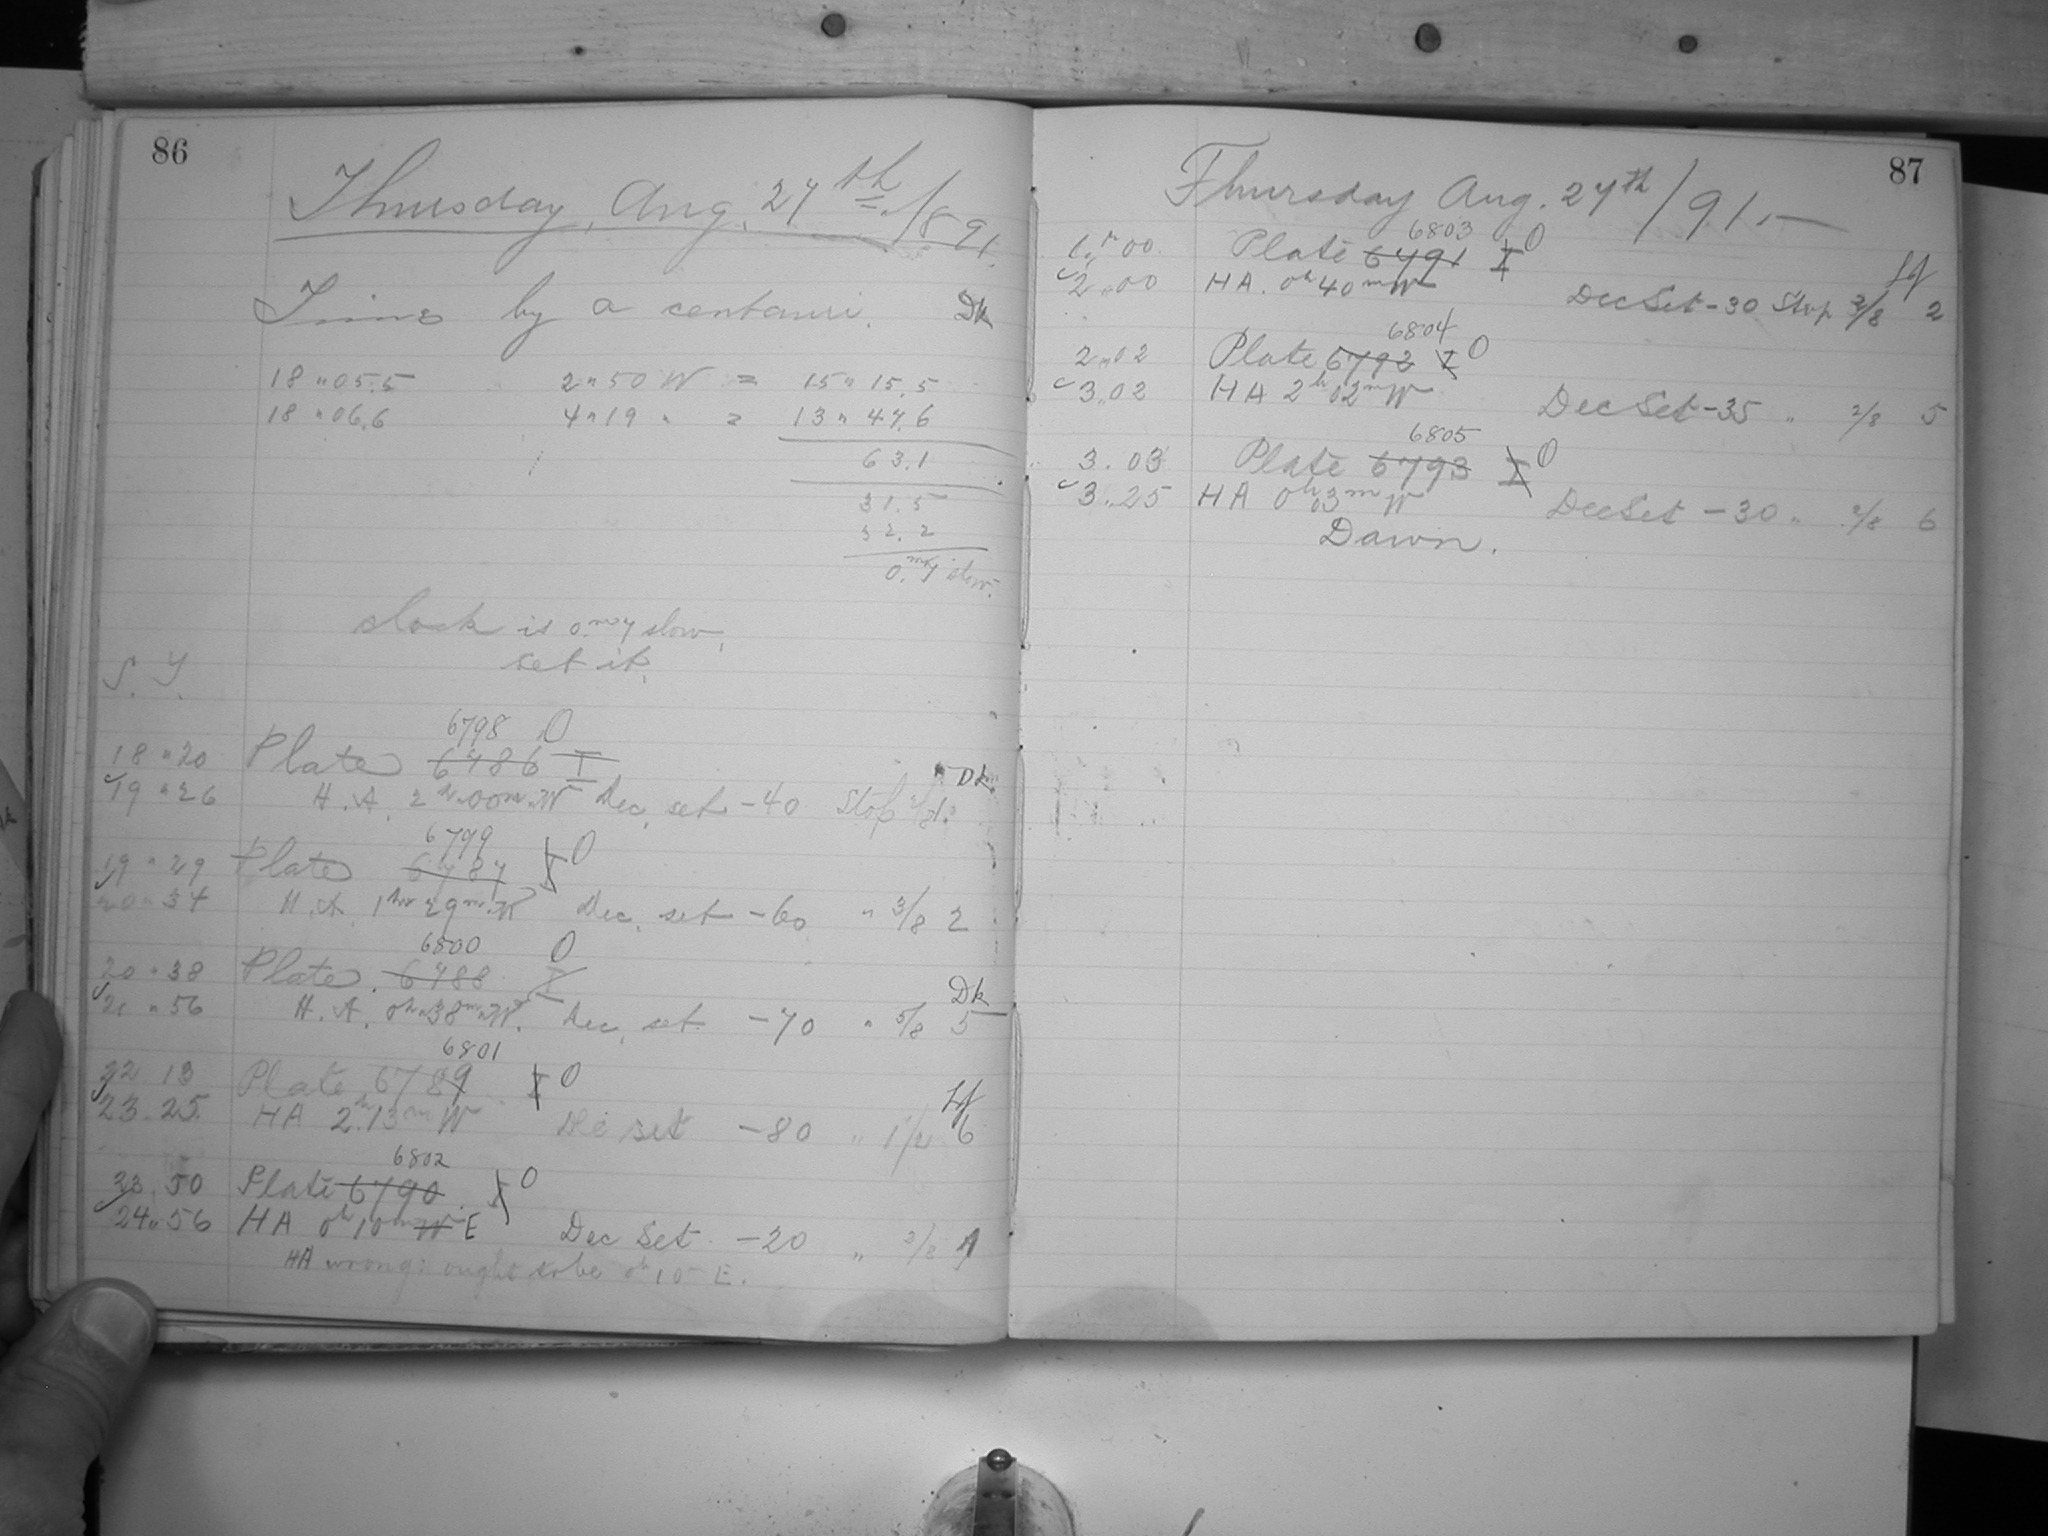 86
Thursday, Aug. 27th/891.
Time by a centauri. Dk
18 " 05.5 2 " 50 W = 15 " 15.5
18 " 06.6 4 " 19 " = 13 " 47.6
63.1
31.5
32.2
0.m7 slow.
clock is 0.m7 slow,
set it.
S. T.
6798 O
18 " 20 Plate 6786 I Dk
19 " 26 H. A. 2h 00m W Dec, set -40 Stop
6799
19 " 29 Plate 6787 I O
20 " 34 H. A. 1hr 29m W Dec, set -60 " 3/8 2
6800 O
20 " 38 Plate. 6788 I Dk
21 " 56 H. A. 0h 38m W. Dec, set -70 " 5/8 5
6801
22 13 Plate 6789 I O
23 . 25. HA 2h 13m W Dec set -80 " 1/2 6
6802
23 . 50 Plate 6790 I O
24 " 56 HA 0h 10m W E Dec Set -20 " 2/8
HA wrong: ought to be 0h 10m E.
87
Thursday Aug. 27th/91.
6803
1.h 00 Plate 6791 I O
2 " 00 HA. 0h 40m W Dec Set -30 Stop 3/8 2
6804
2 " 02 Plate 6792 I O
3 . 02 HA 2h 02m W Dec Set -35 " 2/8 5
6805
3 . 03 Plate 6793 I O
3 . 25 HA 0h 03m W Dec Set -30 " 2/8 6
Dawn.